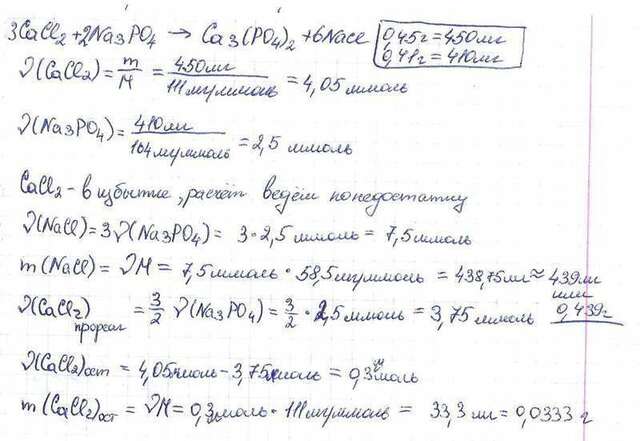 3CaCl₂ + 2Na₃PO₄ → Ca₃(PO₄)₂ + 6NaCl 0,45г = 450мг
0,41г = 410мг
ν(CaCl₂) = m/M = 450мг/111мг/ммоль = 4,05 ммоль
ν(Na₃PO₄) = 410мг/164мг/ммоль = 2,5 ммоль
CaCl₂ - в избытке, расчёт ведём по недостатку
ν(NaCl) = 3ν(Na₃PO₄) = 3·2,5 ммоль = 7,5 ммоль
m(NaCl) = νM = 7,5 ммоль · 58,5мг/ммоль = 438,75мг ≈ 439мг
или
0,439г
ν(CaCl₂) прореаг = 3/2 ν(Na₃PO₄) = 3/2 · 2,5 ммоль = 3,75 ммоль
ν(CaCl₂)ост = 4,05ммоль - 3,75ммоль = 0,3ммоль
m(CaCl₂)ост = νM = 0,3ммоль · 111мг/ммоль = 33,3 мг = 0,0333 г